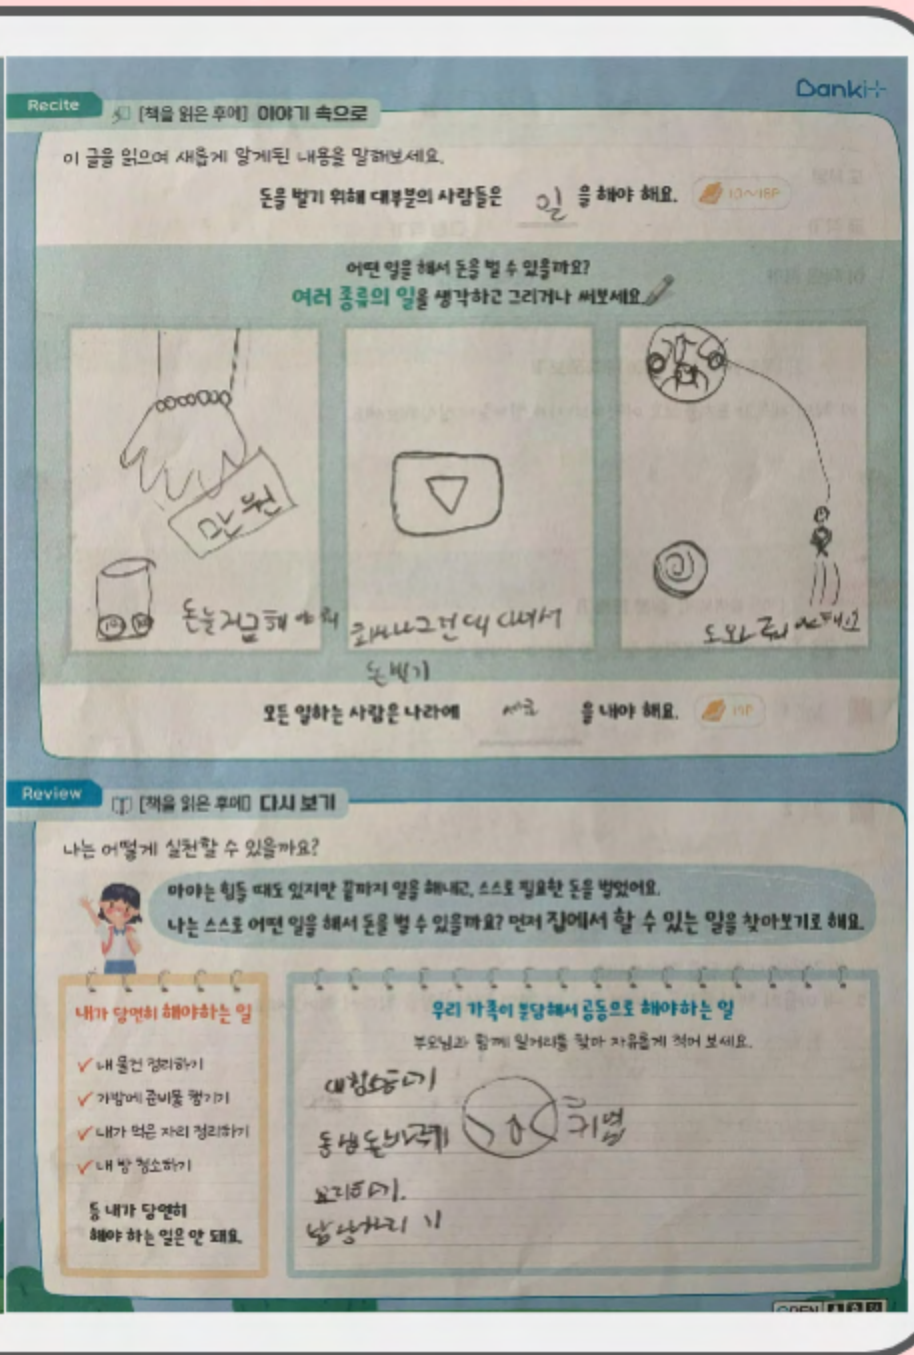 Danki+
Recite
[책을 읽은 후에] 이야기 속으로
이 글을 읽으며 새롭게 알게된 내용을 말해보세요.
돈을 벌기 위해 대부분의 사람들은 일 을 해야 해요. 10~18P
어떤 일을 해서 돈을 벌 수 있을까요?
여러 종류의 일을 생각하고 그리거나 써보세요.
만원
돈을 저금해
돈벌기
모든 일하는 사람은 나라에 세금 을 내야 해요. 19P
Review
[책을 읽은 후에] 다시 보기
나는 어떻게 실천할 수 있을까요?
마야는 힘들 때도 있지만 끝까지 일을 해내고, 스스로 필요한 돈을 벌었어요.
나는 스스로 어떤 일을 해서 돈을 벌 수 있을까요? 먼저 집에서 할 수 있는 일을 찾아보기로 해요.
내가 당연히 해야하는 일
내 물건 정리하기
가방에 준비물 챙기기
내가 먹은 자리 정리하기
내 방 청소하기
등 내가 당연히
해야 하는 일은 안 돼요.
우리 가족이 분담해서 공동으로 해야하는 일
부모님과 함께 일거리를 찾아 자유롭게 적어 보세요.
요리하기.
OPEN